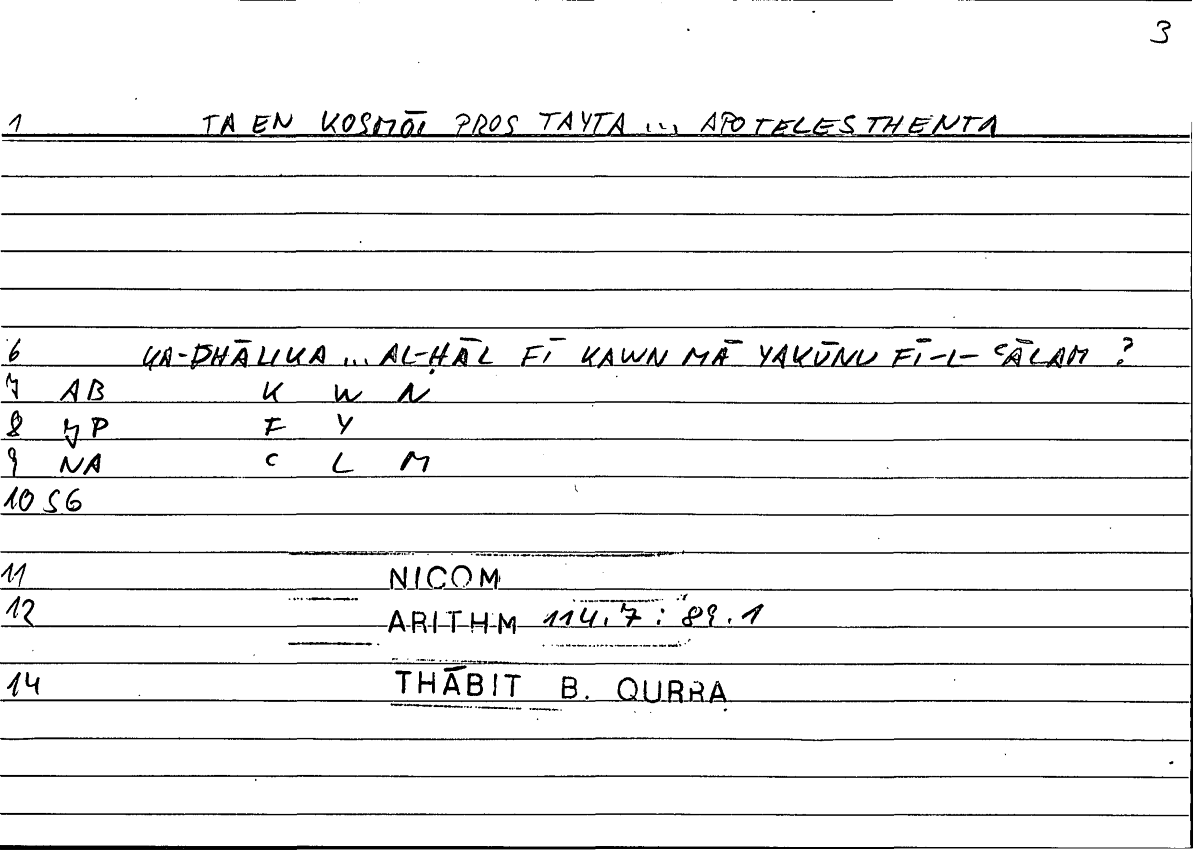 3
1 TA EN KOSMŌI PROS TAYTA ... APOTELESTHENTA
6 KA-DHĀLIKA ... AL-ḤĀL FĪ KAWN MĀ YAKŪNU FĪ-L-ʿĀLAM ?
7 AB K W N
8 P F Y
9 NA C L M
10 SG
11 NICOM
12 ARITHM 114.7 : 89.1
14 THĀBIT B. QURRA